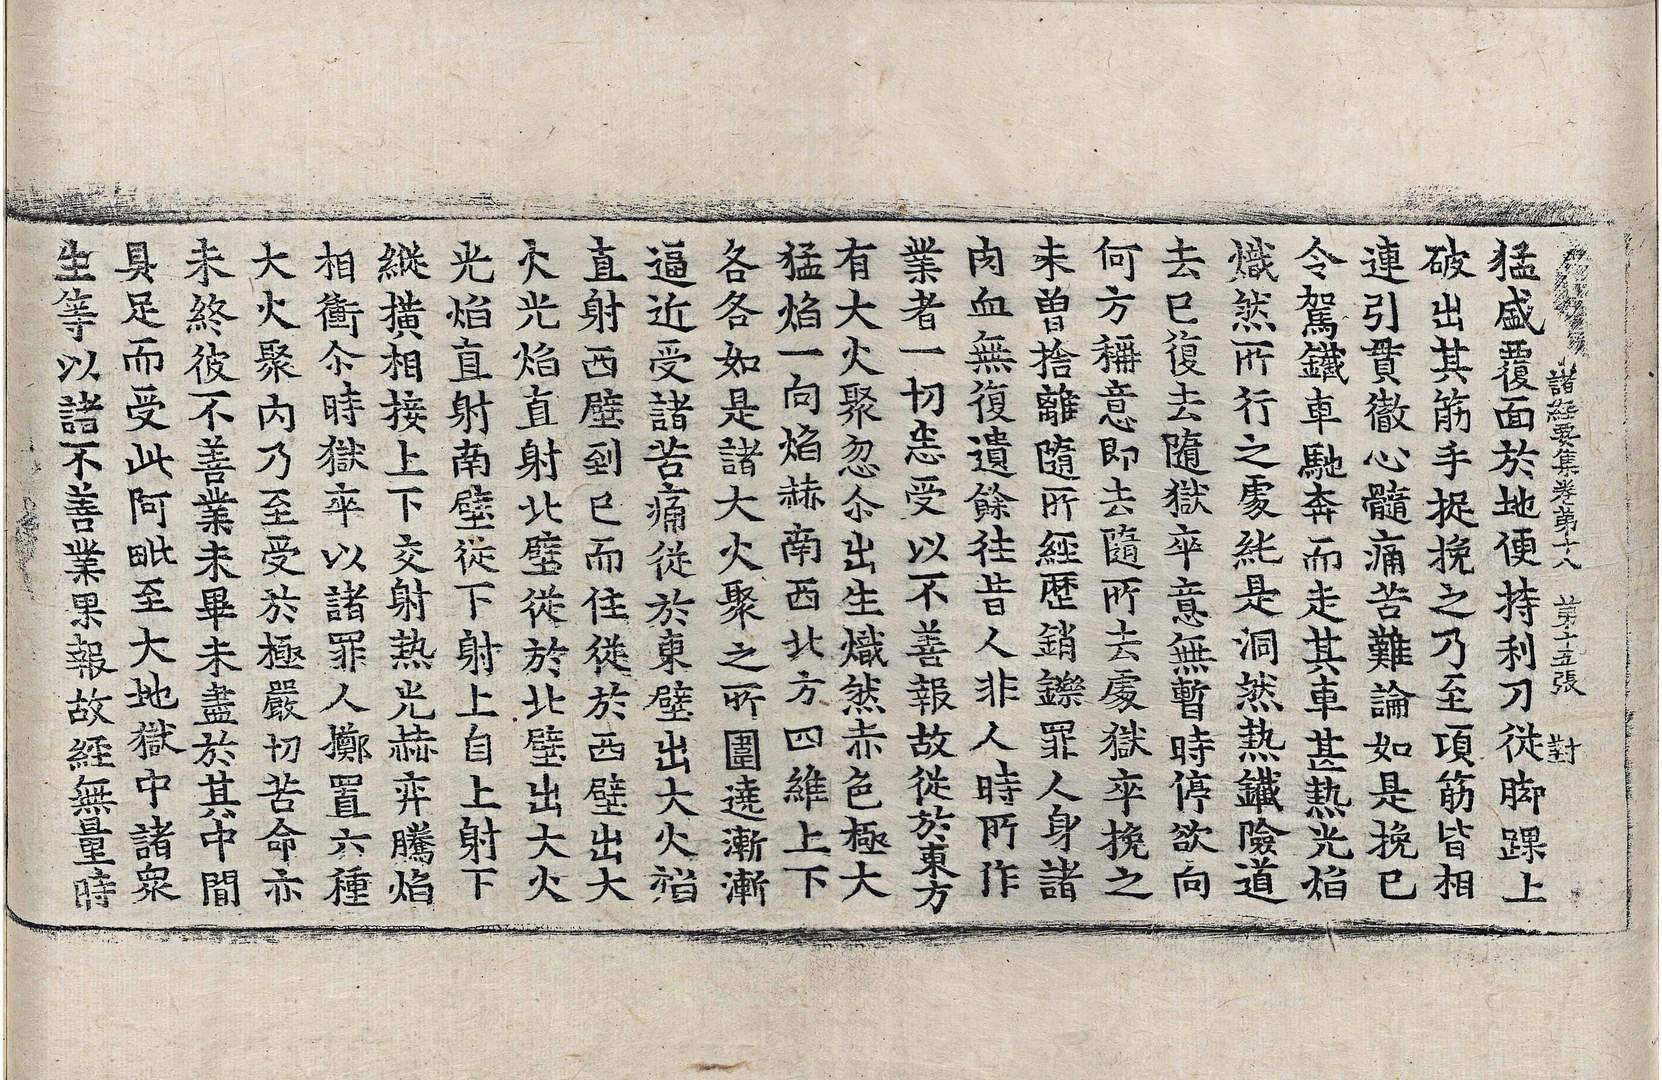 諸経要集卷第十八 第十五張 對
猛盛覆面於地便持利刀從脚踝上
破出其筋手捉挽之乃至項筋皆相
連引貫徹心髓痛苦難論如是挽已
令駕鐵車馳奔而走其車甚熱光焰
熾然所行之處純是洞然熱鐵險道
去已復去隨獄卒意無暫時停欲向
何方稱意即去隨所去處獄卒挽之
未曽捨離隨所經歷銷鑠罪人身諸
肉血無復遺餘往昔人非人時所作
業者一切悉受以不善報故從於東方
有大火聚忽尒出生熾然赤色極大
猛焰一向焰赫南西北方四維上下
各各如是諸大火聚之所圍遶漸漸
逼近受諸苦痛從於東壁出大火焰
直射西壁到已而住從於西壁出大
火光焰直射北壁從於北壁出大火
光焰直射南壁從下射上自上射下
縱橫相接上下交射熱光赫弈騰焰
相衝尒時獄卒以諸罪人擲置六種
大火聚內乃至受於極嚴切苦命亦
未終彼不善業未畢未盡於其中間
具足而受此阿毗至大地獄中諸衆
生等以諸不善業果報故經無量時